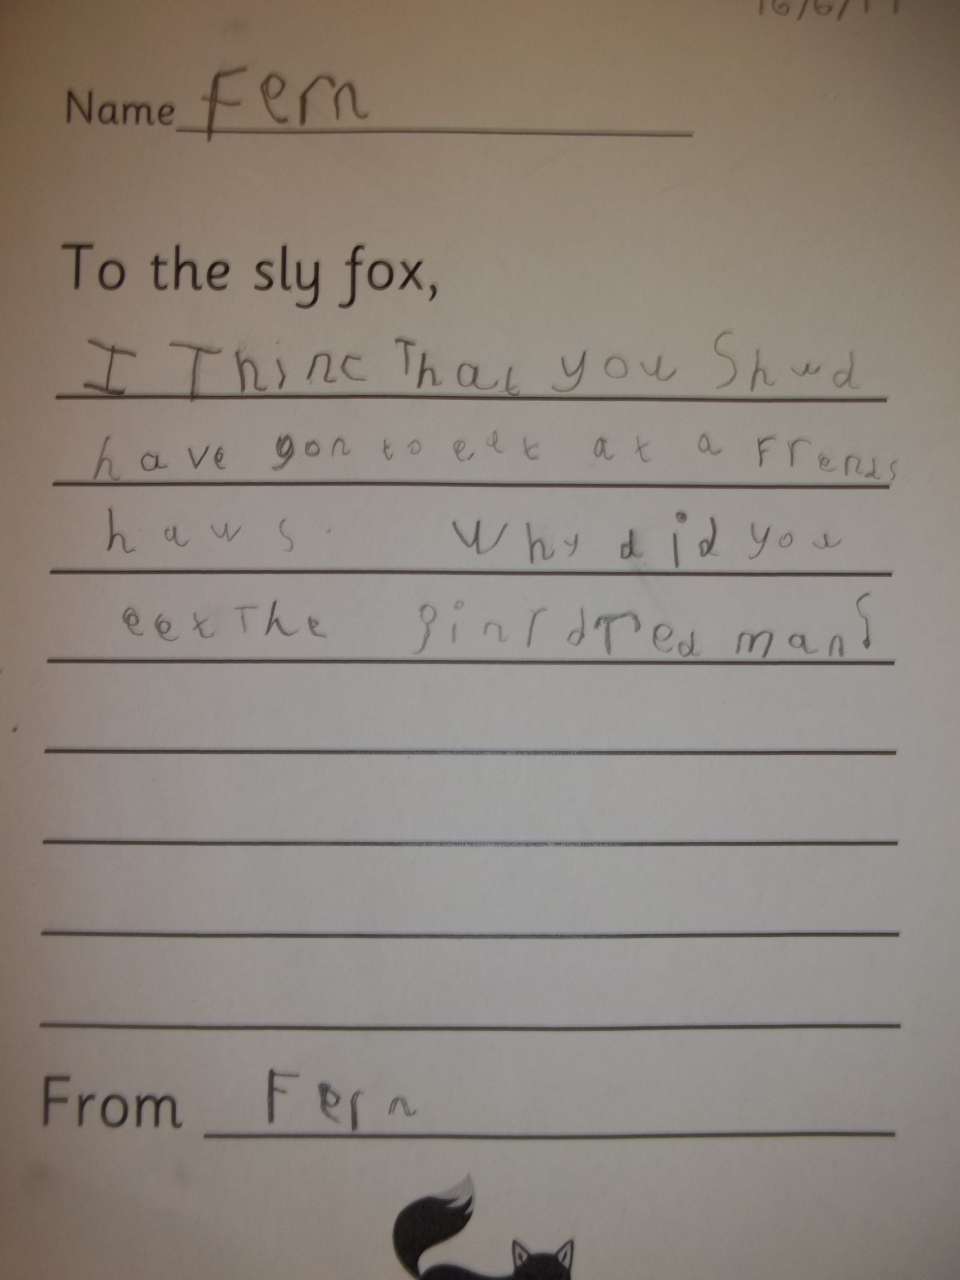 Name Fern
To the sly fox,
I Thinc That you Shud
have gon to eet at a Frends
haws. Why did you
eet The ginrdred man?
From Fern